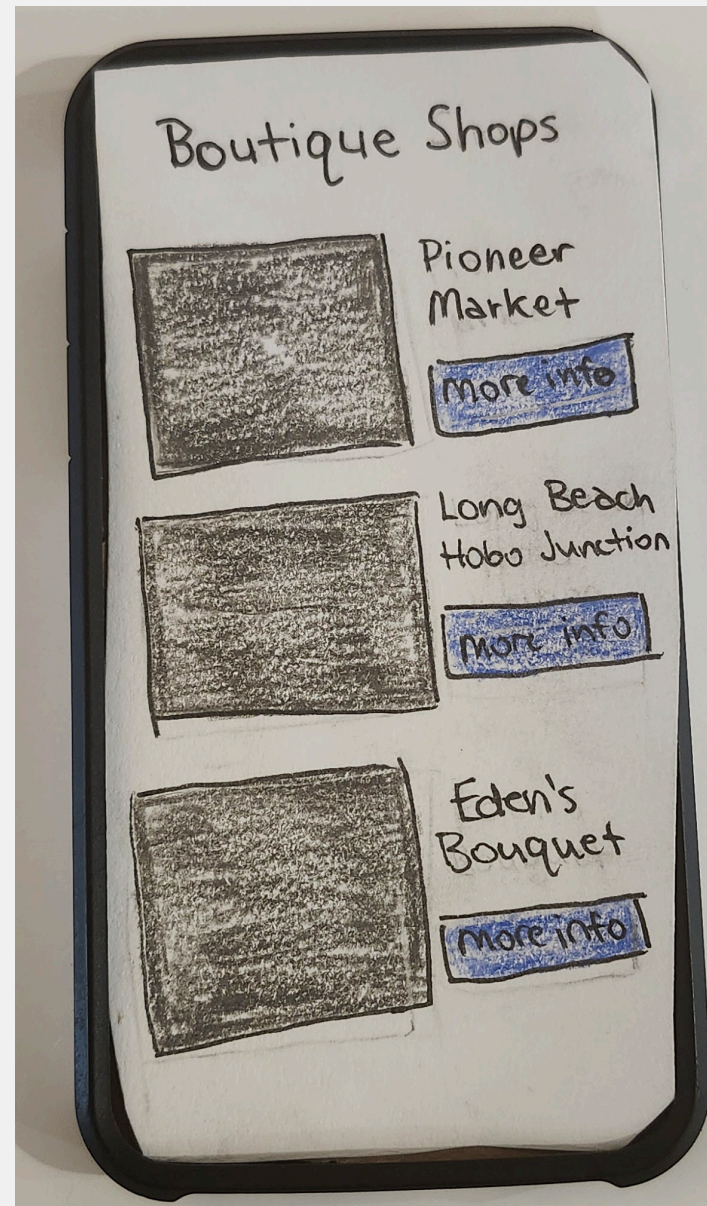 Boutique Shops
Pioneer
Market
more info
Long Beach
Hobo Junction
more info
Eden's
Bouquet
more info